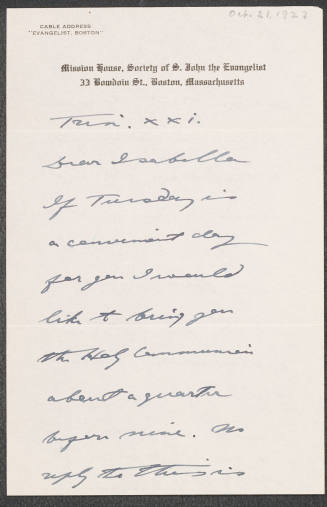 Oct. 21, 1923
CABLE ADDRESS
"EVANGELIST, BOSTON"
Mission House, Society of S. John the Evangelist
33 Bowdoin St., Boston, Massachusetts
Trin. XXI.
Dear Isabella
If Tuesday is
a convenient day
for you I would
like to bring you
the Holy Communion
about a quarter
before nine. No
reply to this is